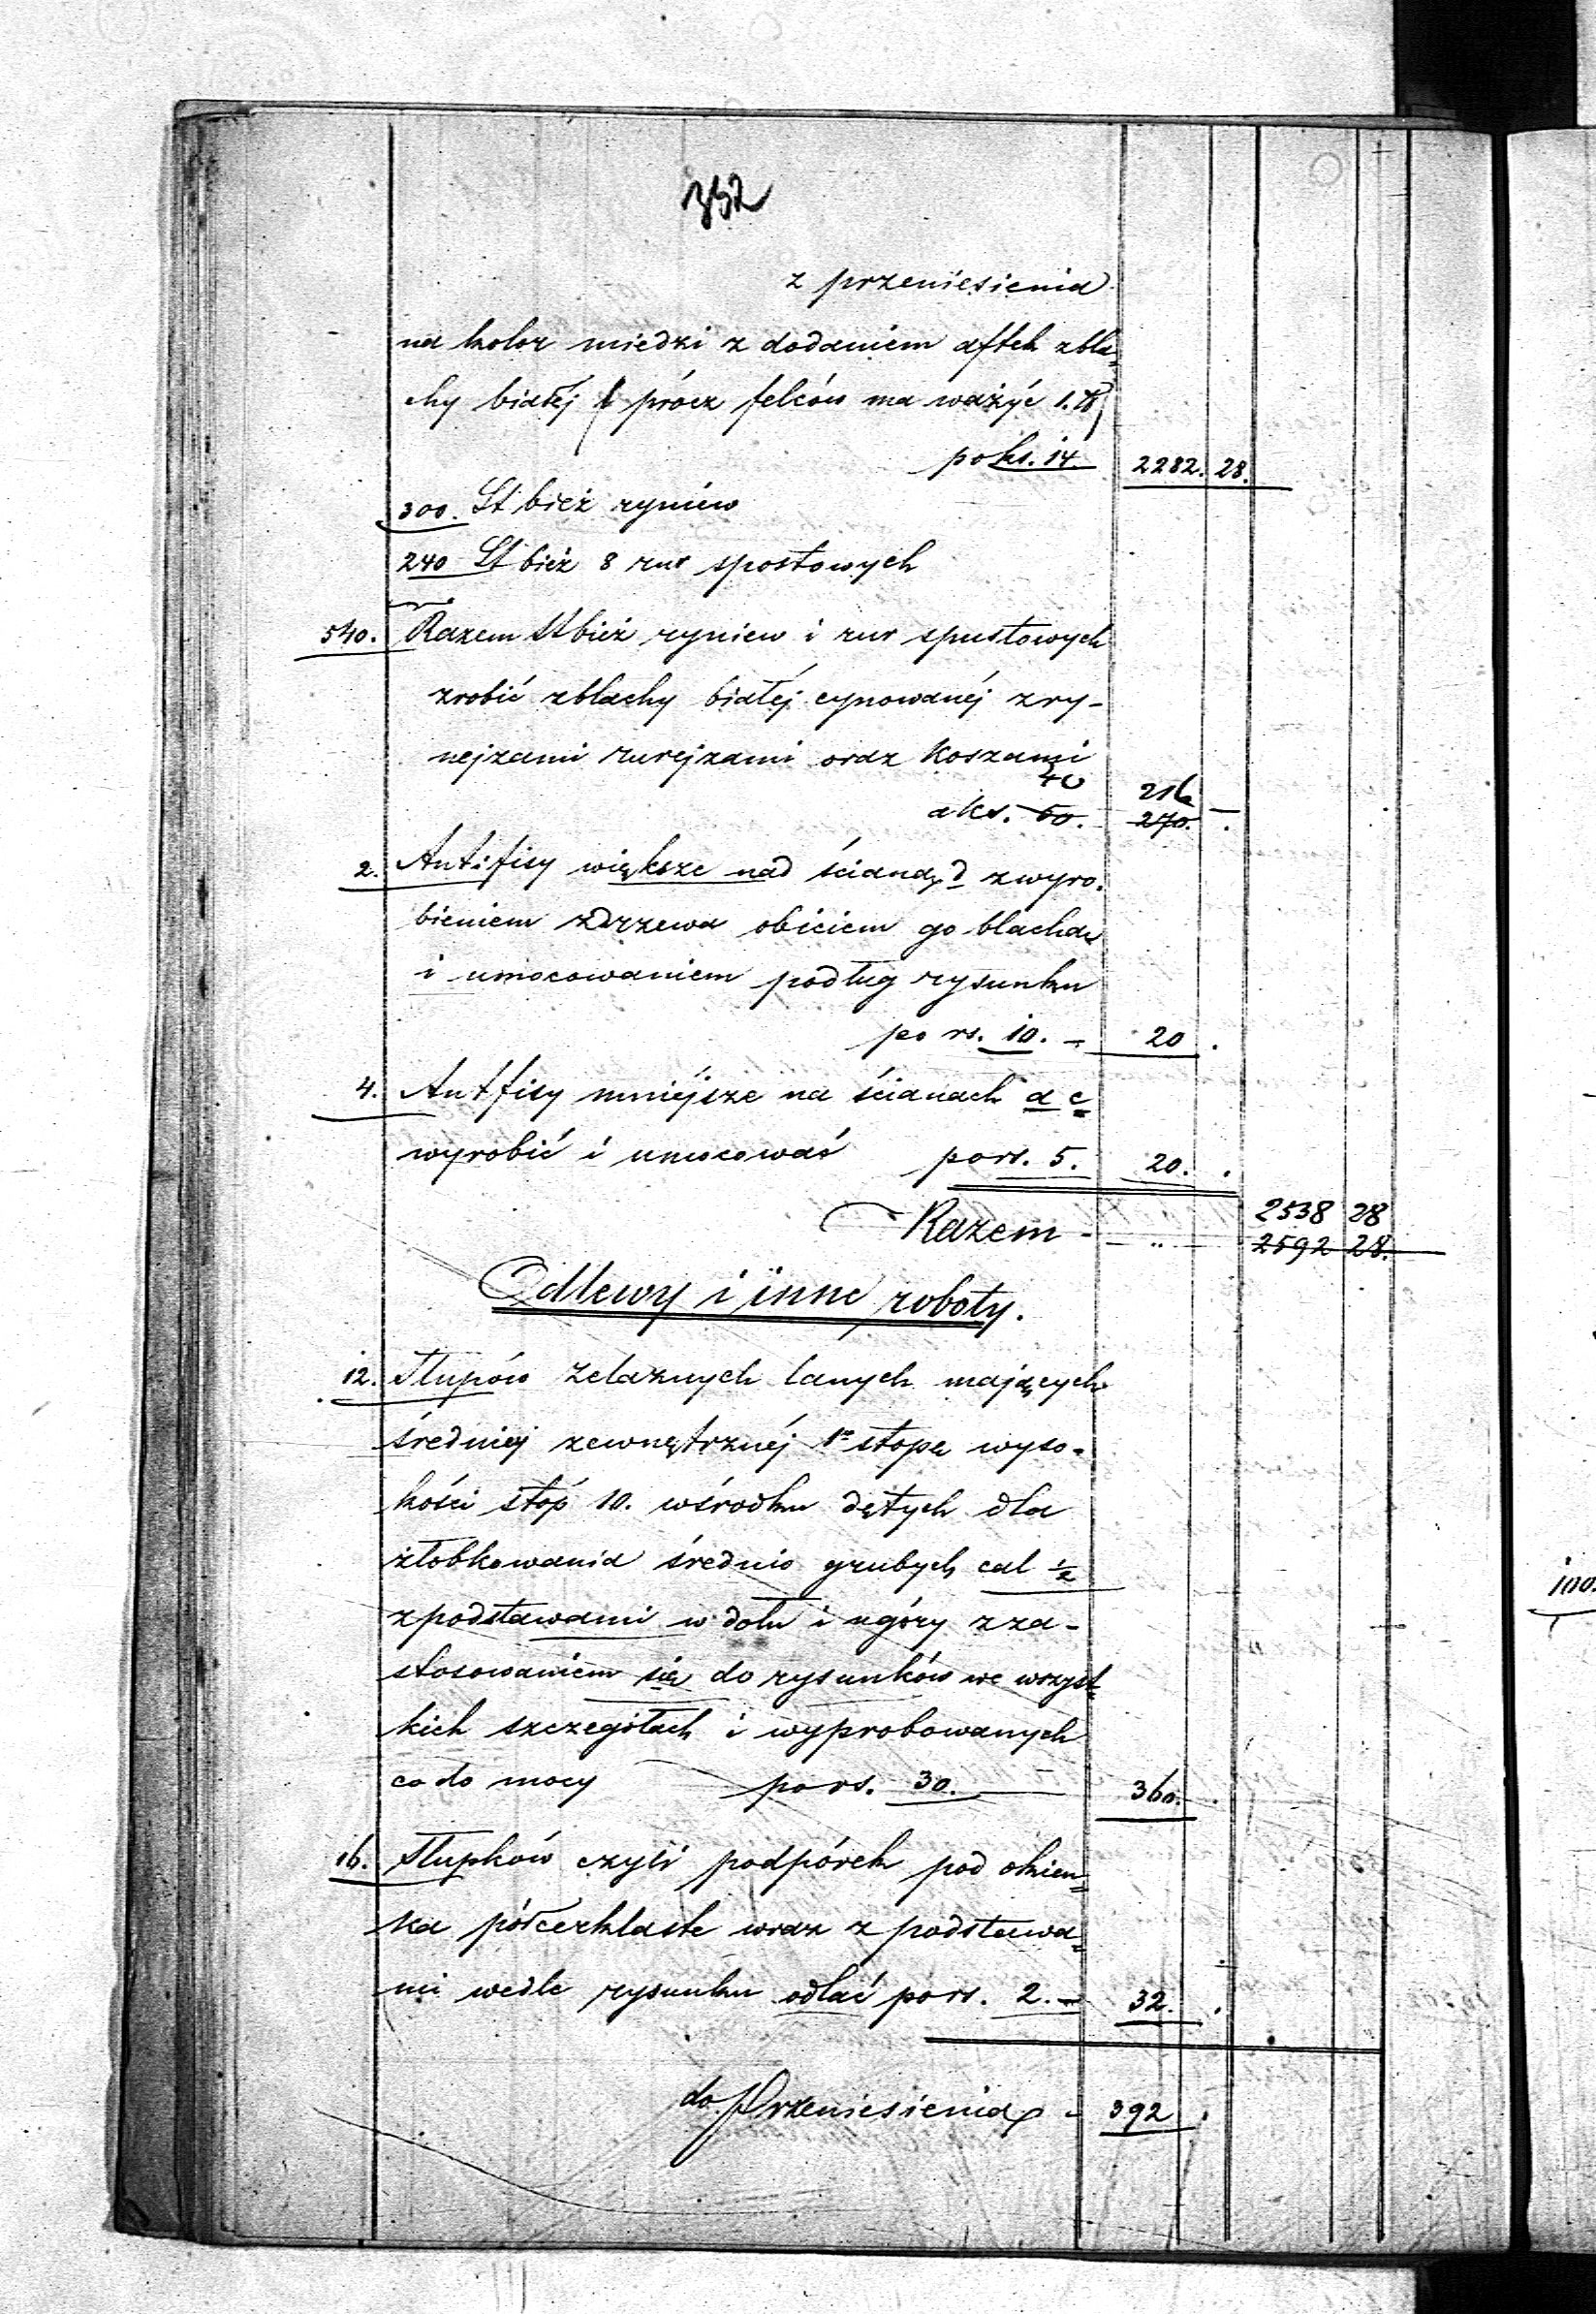 352
z przeniesienia
na kolor miedzi z dodaniem aftek zbla=
chy białéj ( prócz felców ma ważyć 1. ℔)
po ks. 14. 2282. 28.
300. St bież ryniew
240 St bież 8 rur spostowych
540. Razem St bież ryniew i rur spustowych
zrobić zblachy białéj cynowanéj zry-
nejzami rurejzami oraz Koszami
40 216
a ks. 50. 270. .
2. Antifisy większe nad ścianą d zwyro-
bieniem zdrzewa obiciem go blachą
i umocowaniem podług rysunku
po rs. 10. - 20 .
4. Antfisy mniéjsze na ścianach a c
wyrobić i umocować po rs. 5. 20. .
2538 28
Razem - 2592 28.
Odlewy i inne roboty.
12. Słupów żelaznych lanych mających
średniej zewnętrznéj 1ą stopę wyso-
kości stóp 10. wśrodku dętych dla
żłobkowania średnio grubych cal ½
zpodstawami w dołu i ugóry zza-
stosowaniem się do rysunków we wszyst=
kich szczegółach i wyprobowanych
co do mocy po rs. 30. 360. .
16. Słupków czyli podpórek pod okien=
ka półcerklaste wraz z podstawa=
mi wedle rysunku odlać po rs. 2. - 32. .
do Przeniesienia - 392 .
100.